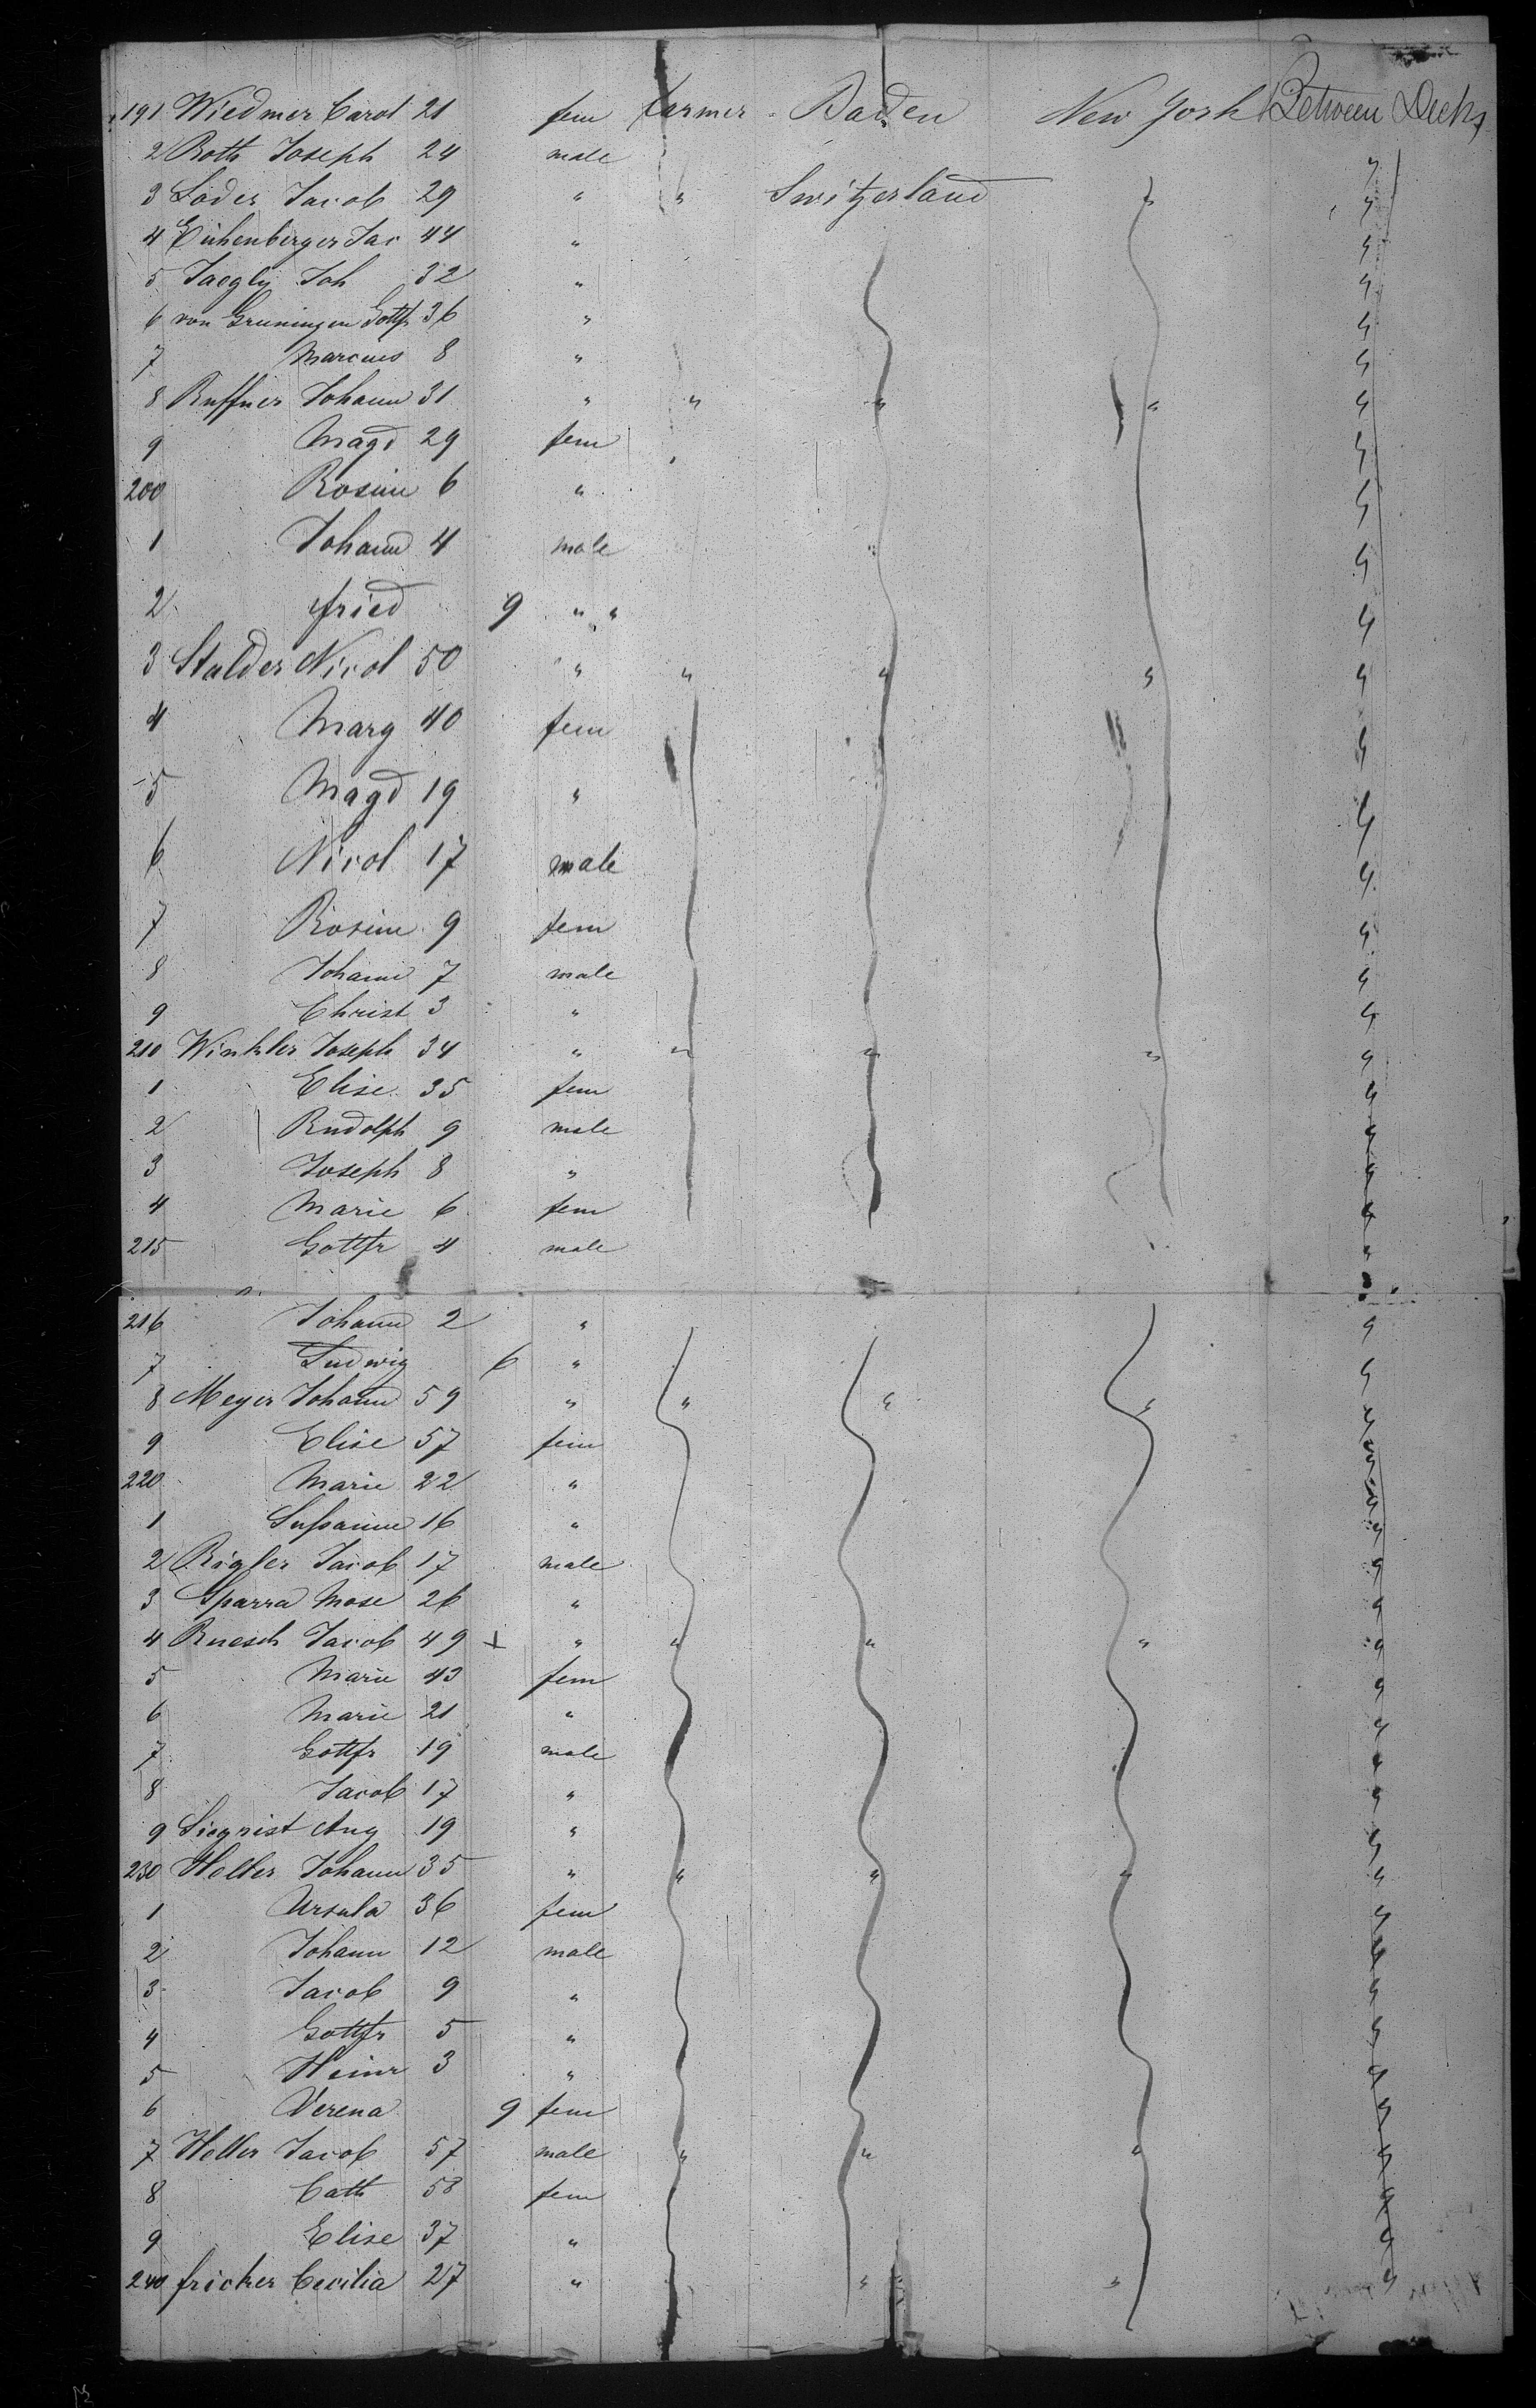 191 Wiedmer Carol 21 fem farmer Baden New York Between Decks
2 Roth Joseph 24 male "
3 Soder Jacob 29 " " Switzerland " "
4 Eichenberger Jac 44 " "
5 Jaegly Joh 32 " "
6 von Gruningen Gottfr 36 " "
7 Marcus 8 " "
8 Ruffner Johann 31 " " " " "
9 Magd 29 fem "
200 Rosine 6 " "
1 Johann 4 male "
2 fried 9 " " "
3 Stalder Nicol 50 " " " " "
4 Marg 40 fem "
5 Magd 19 " "
6 Nicol 17 male "
7 Rosine 9 fem "
8 Johann 7 male "
9 Christ 3 " "
210 Winkler Joseph 34 " " " " "
1 Elise 35 fem "
2 Rudolph 9 male "
3 Joseph 8 " "
4 Marie 6 fem "
215 Gottfr 4 male "
216 Johann 2 " "
7 Ludwig 6 " "
8 Meyer Johann 59 " " " " "
9 Elise 57 fem "
220 Marie 22 " "
1 Sussanne 16 " "
2 Jacob 17 male "
3 Sparra Mose 26 " "
4 Ruesch Jacob 49 + " " " " "
5 Marie 43 fem "
6 Marie 21 " "
7 Gottfr 19 male "
8 Jacob 17 " "
9 Siegrist Aug 19 " "
230 Holler Johann 35 " " " " "
1 Ursula 36 fem "
2 Johann 12 male "
3 Jacob 9 " "
4 Gottfr 5 " "
5 Heinr 3 " "
6 Verena 9 fem "
7 Holler Jacob 57 male " " " "
8 Cath 58 fem "
9 Elise 37 " "
240 fricker Cecilia 27 " " " "